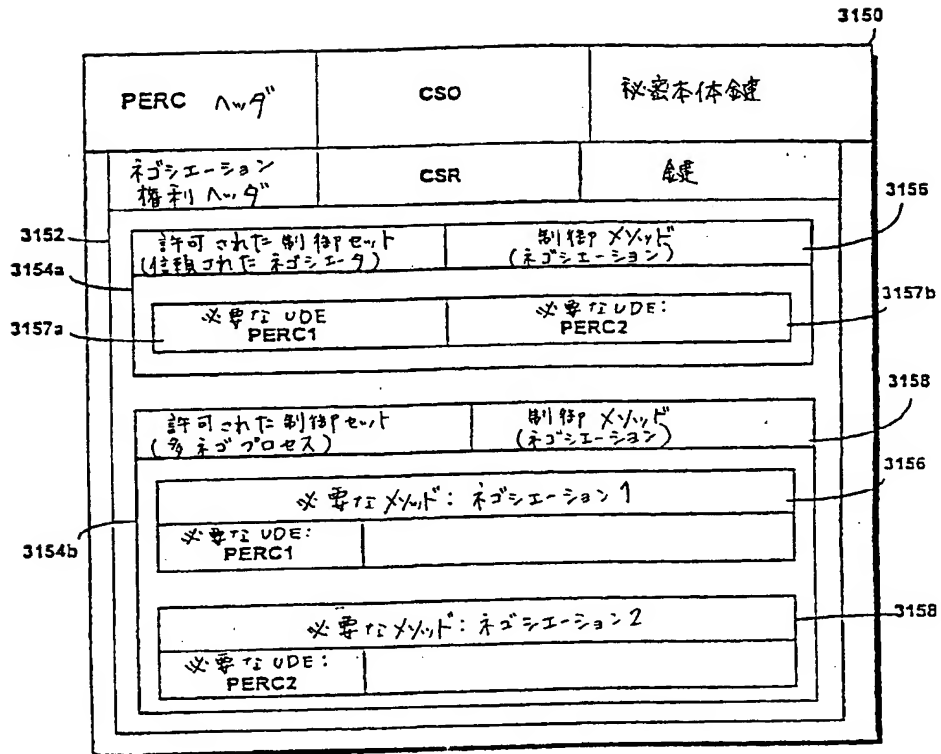 3150
PERC ヘッダ
CSO
秘密本体鍵
ネゴシエーション
権利ヘッダ
CSR
鍵
3152
3154a
3157a
許可された制御セット
(信頼されたネゴシエータ)
制御メソッド
(ネゴシエーション)
3156
必要な UDE
PERC1
必要な UDE:
PERC2
3157b
許可された制御セット
(多ネゴプロセス)
制御メソッド
(ネゴシエーション)
3158
必要なメソッド: ネゴシエーション1
3156
必要な UDE:
PERC1
3154b
必要なメソッド: ネゴシエーション2
3158
必要な UDE:
PERC2